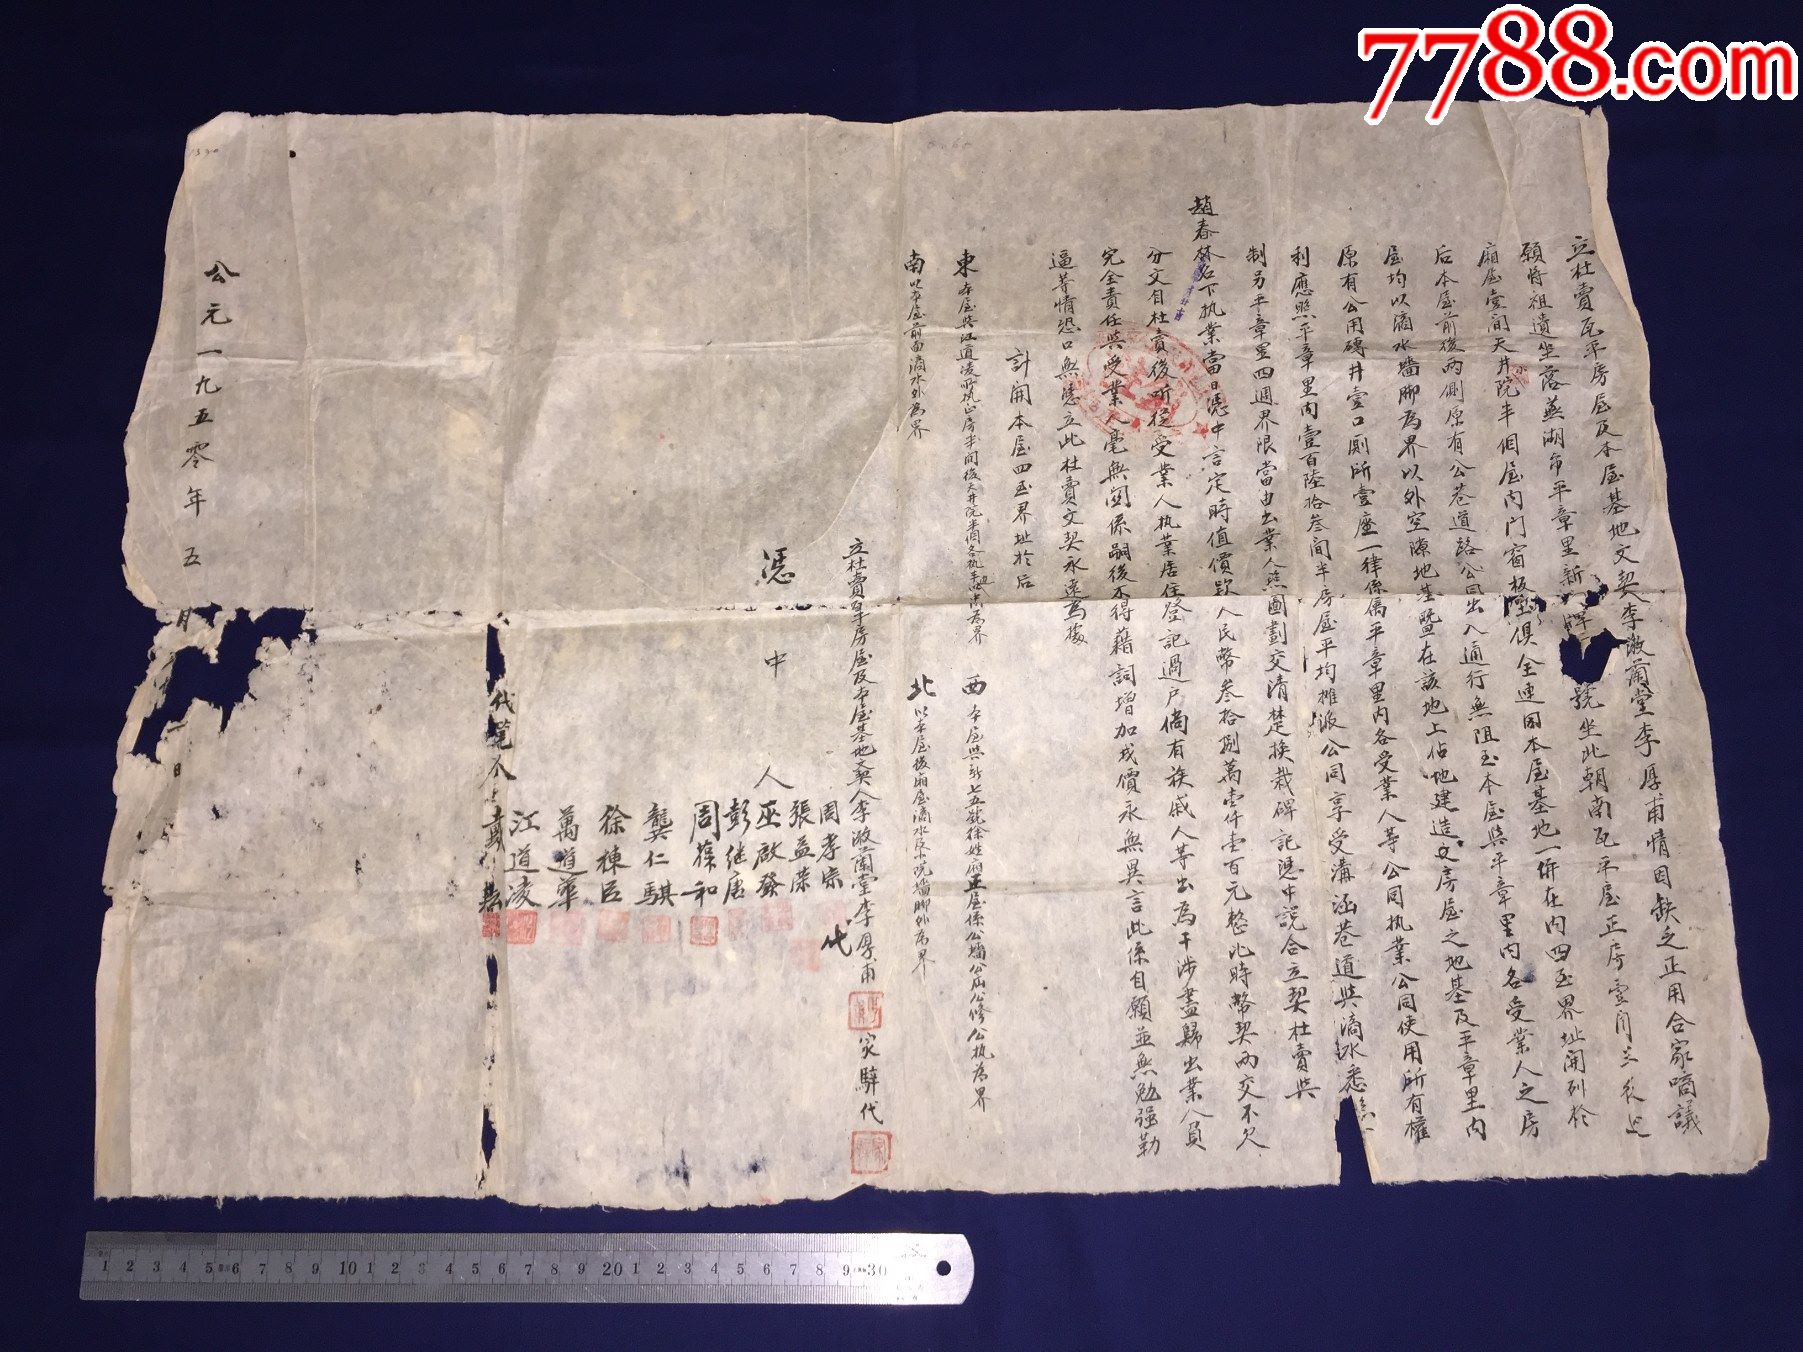 7788.com
立杜賣瓦平房屋及本屋基地文契人李漱蘭堂李厚甫情因缺乏正用合家嘀議
願將祖遺坐落蕪湖市平章里新牌號坐北朝南瓦平屋正房壹間
廂屋壹間天井院半個屋內門窗板壁俱全連同本屋基地一併在內四至界址開列於
后本屋前後兩側原有公巷道路公同出入通行無阻至本屋與平章里內各受業人之房
屋均以滴水墻脚為界以外空隙地基暨在該地上佔地建造之房屋之地基及平章里內
原有公用磚井壹口厠所壹座一律係屬平章里內各受業人等公同執業公同使用所有權
利應照平章里內壹百陸拾叁間半房屋平均攤派公同享受溝涵巷道與滴水悉
制另平章里四週界限當由出業人照圖劃交清楚挨栽碑記憑中說合立契杜賣與
趙春林名下执業當日憑中言定時值價欵人民幣叁拾捌萬壹仟壹百元整比時幣契兩交不欠
分文自杜賣後听從受業人执業居住登記過戶倘有族戚人等出為干涉盡歸出業人員
完全責任與受業人毫無関係嗣後不得藉詞增加找價永無異言此係自願並無勉强勒
逼等情恐口無憑立此杜賣文契永遠為據
計開本屋四至界址於后
東 本屋與江道凌所执正房半間後天井院半個各执半為界
西 本屋與新七五號徐姓廂正屋係公墻公山公修公执為界
南 以本屋前面滴水外為界
北 以本屋後廂屋滴水及院墻脚外為界
立杜賣瓦平房屋及本屋基地文契人李漱蘭堂李厚甫 家驊代
憑中人
周孝宗 代
張益榮
巫啟發
彭继唐
周葆和
龔仁騏
徐棟臣
萬道華
江道凌
代筆
公元一九五零年五月 日